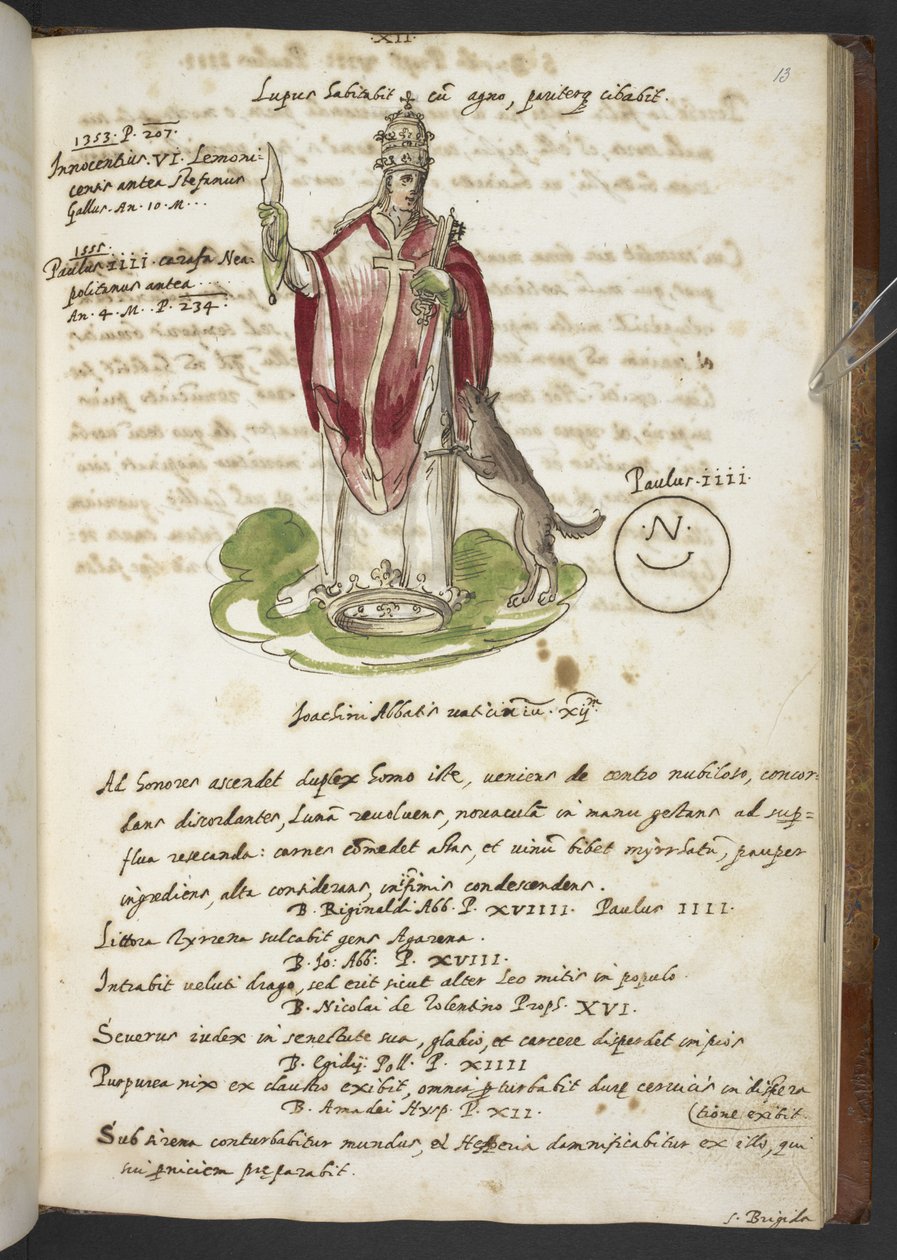 XII.
13
Lupus habitabit cū agno, pariterq cibabit.
1353. P. 207.
Innocentius. VI. Lemoni:
censis antea Stefanus
Gallus. An. 10. M...
1555.
Paulus. IIII. carafa Nea-
politanus antea.....
An. 4. M.. P. 234.
Paulus. IIII.
.N.
Joachini Abbatis vaticiniū. xij.m
Ad honores ascendet duplex homo iste, veniens de centro nubiloso, concor-
dans discordantes, Lunā revolvens, novaculā in manu gestans ad sup=
flua resecanda: carnes cōmedet assas, et vinū bibet myrrhatū, pauper
ingrediens, alta considerans, infimis condescendens.
B. Riginaldi Abb. P. XVIIII. Paulus IIII.
Littora Tyrrena sulcabit gens Agarena.
B. Jo: Abb: P. XVIII.
Intrabit veluti drago, sed erit sicut alter Leo mitis in populo.
B. Nicolai de Tolentino Props. XVI.
Severus iudex in senectute sua, gladio, et carcere disperdet impios
B. Egidij Poll. P. XIIII
Purpurea nix ex claustro exibit, omnes pturbabit durę cervicis in dispera
(tione exibit.
B. Amadei Hysp. P. XII.
Sub sirena conturbabitur mundus, et Hesperia damnificabitur ex illo, qui
sui pniciem pręparabit.
S. Brigida